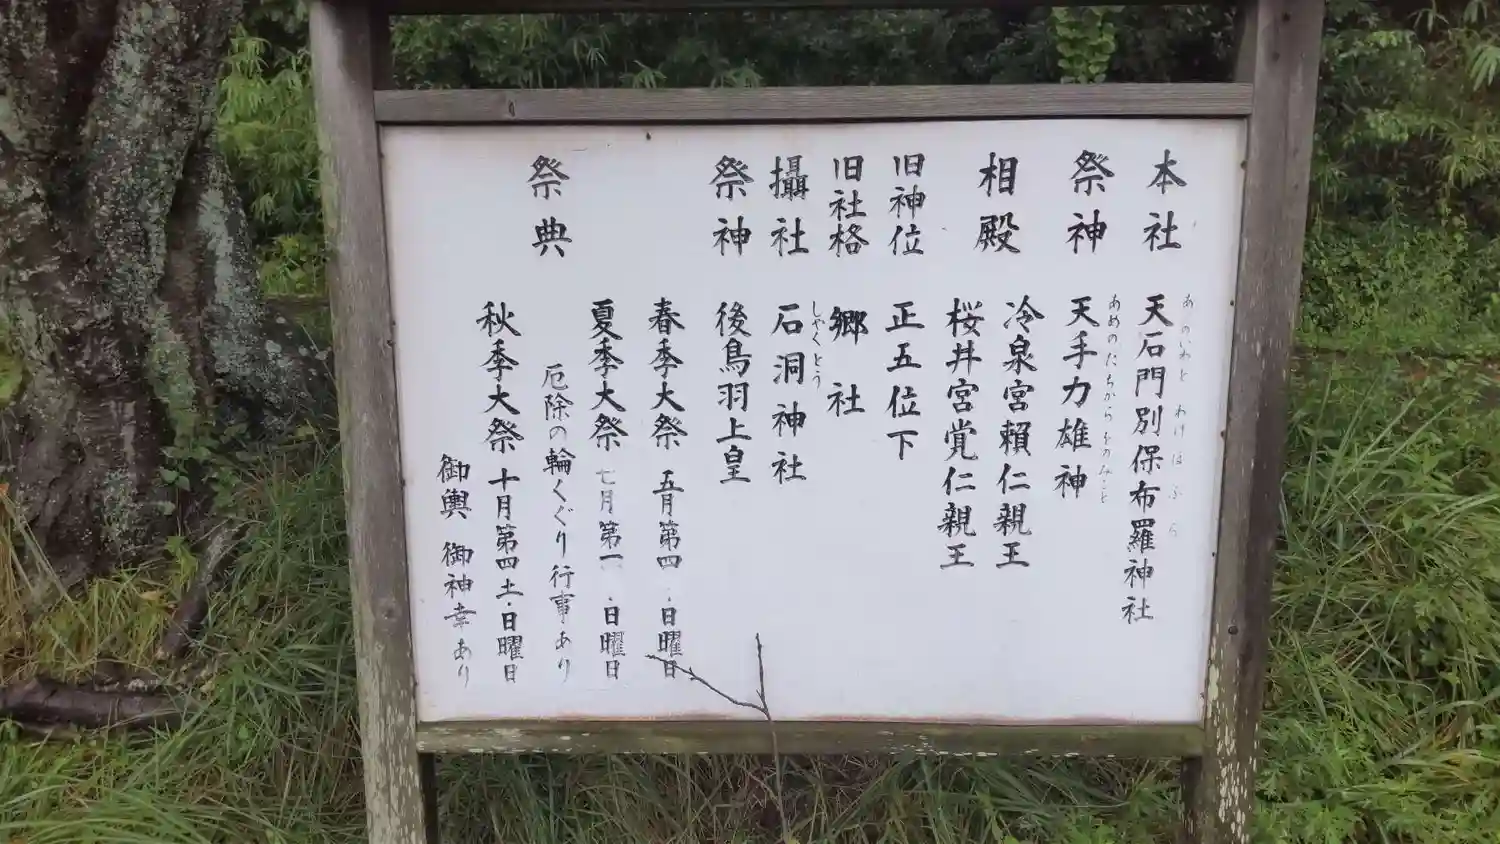 本社 天石門別保布羅神社
あめのいわと わけ ほ ふ ら
祭神 天手力雄神
あめのたぢからをのみこと
相殿 冷泉宮頼仁親王
桜井宮覚仁親王
旧神位 正五位下
旧社格 郷社
攝社 石洞神社
しゃくどう
祭神 後鳥羽上皇
祭典 春季大祭 五月第四 ・日曜日
夏季大祭 七月第一 ・日曜日
厄除の輪くぐり行事あり
秋季大祭 十月第四土・日曜日
御輿 御神幸あり